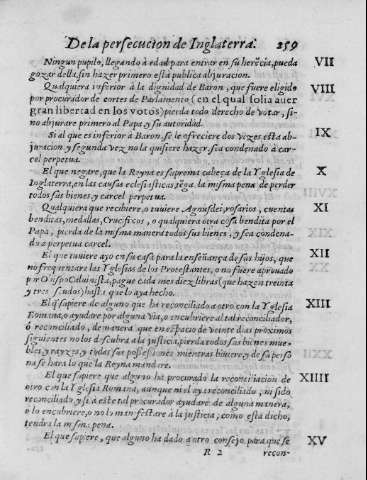 De la persecucion de Inglaterra. 259
Ningun pupilo, llegando à edad para entrar en su herẽcia, pueda VII
gozar della, sin hazer primero esta publica abjuracion.
Qualquiera inferior à la dignidad de Baron, que fuere eligido VIII
por procurador de cortes de Parlamento (en el qual solia auer
gran libertad en los votos) pierda todo derecho de votar, si-
no abjurare primero al Papa y su autoridad.
Si al que es inferior à Baron, se le ofreciere dos vezes esta ab- IX
juracion y segunda vez no la quisiere hazer, sea condenado à car-
cel perpetua.
El que negare, que la Reyna es suprema cabeça de la Yglesia de X
Inglaterra, en las causas eclesiasticas, tẽga la misma pena de perder
todos sus bienes, y carcel perpetua.
Qualquiera que recibiere, o tuuiere Agnusdei, rosarios, cuentas XI
benditas, medallas, Crucifixos, o qualquiera otra cosa bendita por el
Papa, pierda de la misma manera todos sus bienes, y sea condena-
do a perpetua carcel.
El que tuuiere ayo en su casa para la enseñança de sus hijos, que XII
no frequentare las Yglesias de los Protestantes, o no fuere aprouado
por Obispo Caluinista, pague cada mes diez libras (que hazen treinta
y tres escudos) hasta que lo aya hecho.
El q̃ supiere de alguno que ha reconciliado a otro con la Yglesia XIII
Romana, o ayudare por alguna via, o encubriere al tal reconciliador,
ó reconciliado, de manera que en espacio de veinte dias proximos
siguientes no los descubra a la justicia, pierda todos sus bienes mue-
bles y rayzes, y todas sus possesiones mientras biuiere, y de su perso
na se hara lo que la Reyna mandare.
El que supiere que alguno ha procurado la reconciliacion de XIIII
otro con la Yglesia Romana, aunque no el aya reconciliado, ni sido
reconciliado y si a este tal procurador ayudare de alguna manera,
ò lo encubriere, o no lo manifestare à la justicia, como esta dicho,
tendra la misma pena.
El que supiere, que alguno ha dado a otro consejo, para que se XV
R 2 recon-